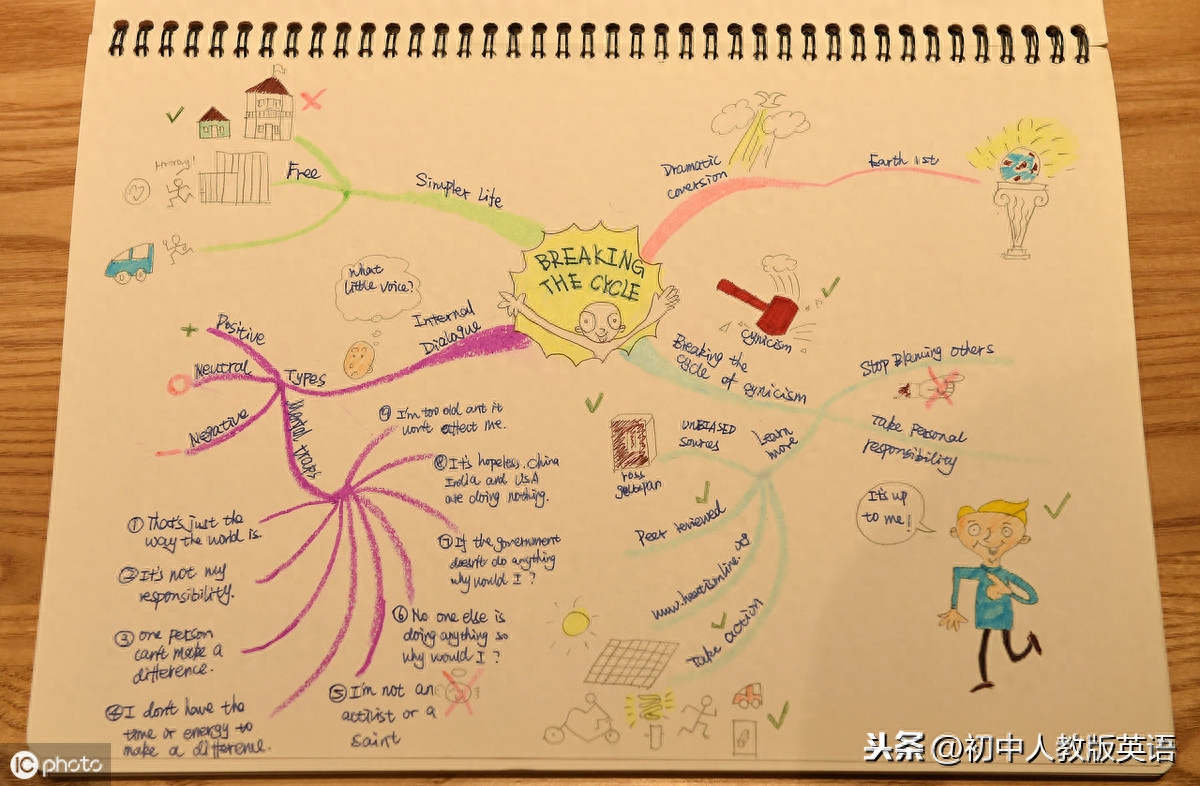 BREAKING
THE CYCLE
Simpler Life
Free
Hooray!
Dramatic
coversion
Earth 1st
Internal
Dialogue
What
little voice?
Types
Positive
Neutral
Negative
Mental traps
① That's just the
way the world is.
② It's not my
responsibility.
③ one person
can't make a
difference.
④ I don't have the
time or energy to
make a difference.
⑤ I'm not an
activist or a
saint
⑥ No one else is
doing anything so
why would I?
⑦ If the government
doesn't do anything
why would I?
⑧ It's hopeless. China
India and USA
are doing nothing.
⑨ I'm too old and it
won't effect me.
Breaking the
cycle of cynicism
cynicism
Stop Blaming others
Take Personal
responsibility
It's up
to me!
Learn
more
UNBIASED
sources
ross
gelbspan
Peer reviewed
Take action
iC photo
头条 @初中人教版英语